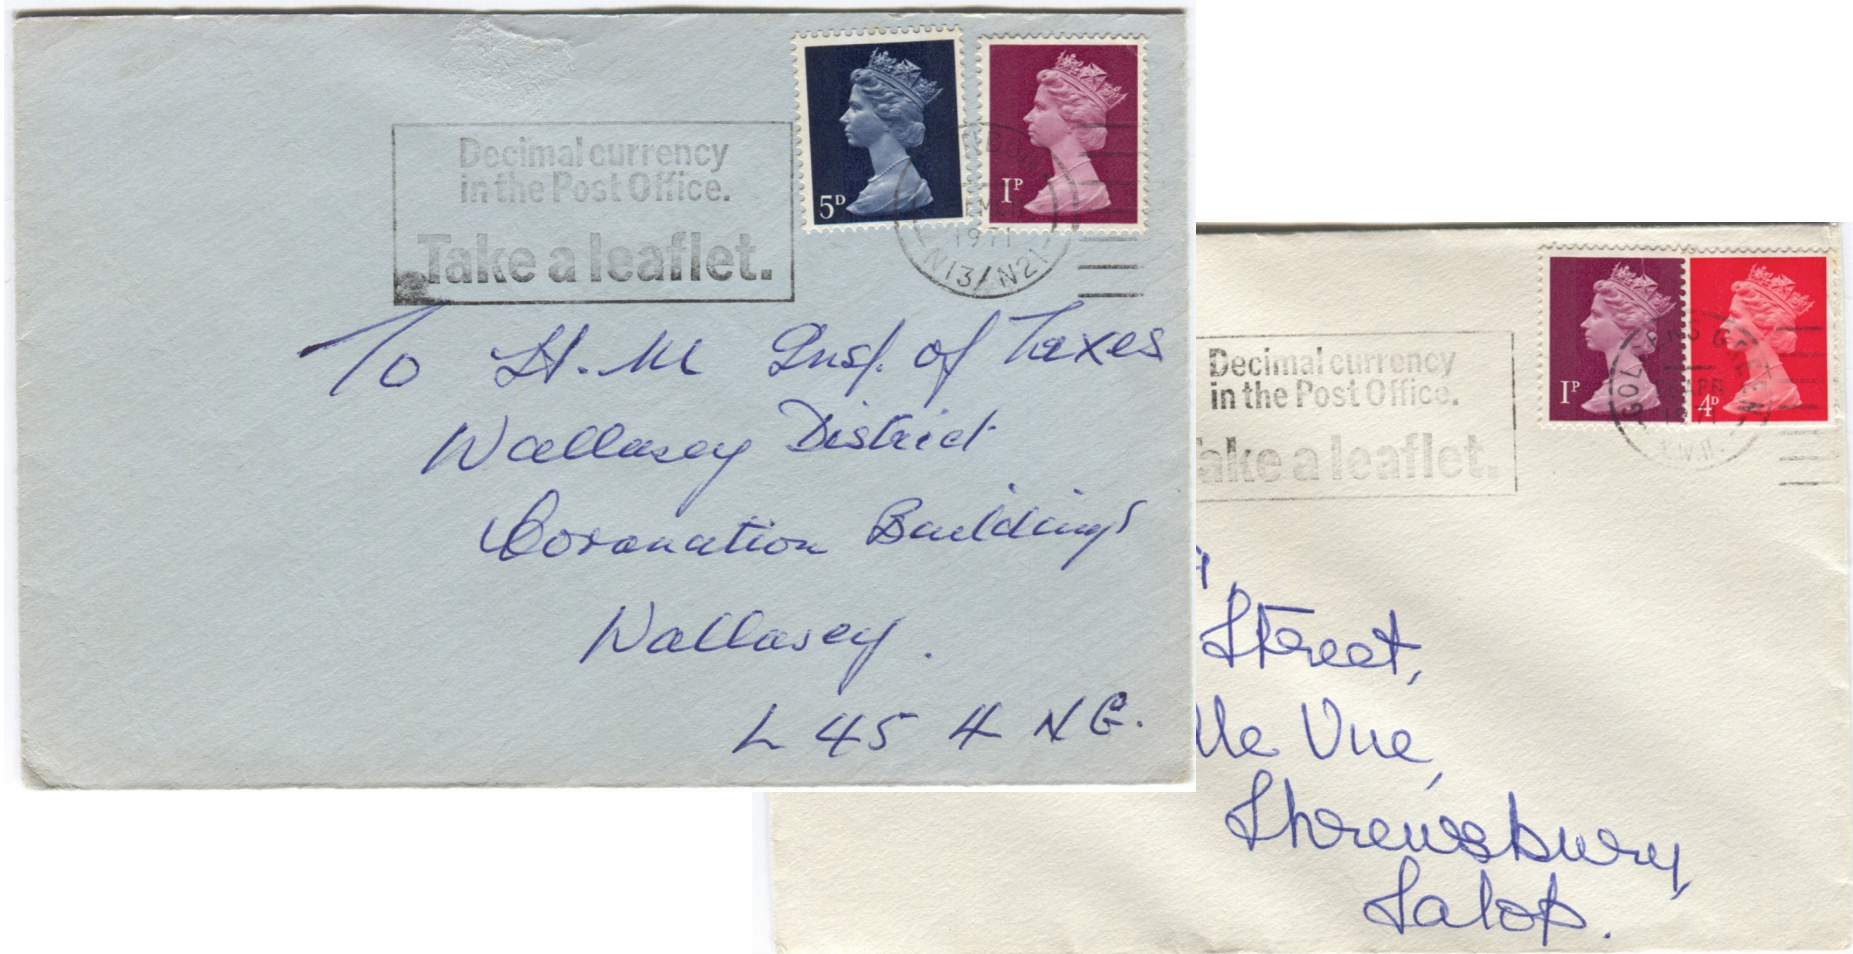 Decimal currency
in the Post Office.
Take a leaflet.
5D
1P
1971
N13/N21
To H.M Insp. of Taxes
Wallasey District
Coronation Buildings
Wallasey.
L45 4 NE.
Decimal currency
in the Post Office.
ake a leaflet.
1P
4D
GOLDERS GREEN
APR
N.W.11.
Street,
lle Vue,
Shrewsbury,
Salop.